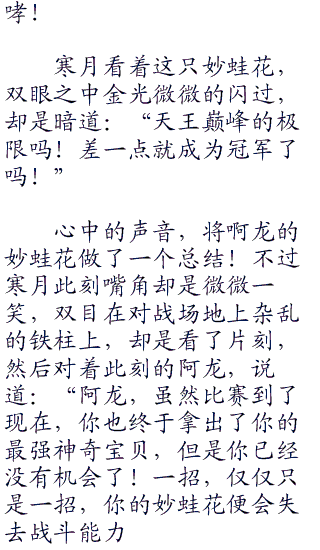 哮！
寒月看着这只妙蛙花，
双眼之中金光微微的闪过，
却是暗道：“天王巅峰的极
限吗！差一点就成为冠军了
吗！”
心中的声音，将啊龙的
妙蛙花做了一个总结！不过
寒月此刻嘴角却是微微一
笑，双目在对战场地上杂乱
的铁柱上，却是看了片刻，
然后对着此刻的阿龙，说
道：“阿龙，虽然比赛到了
现在，你也终于拿出了你的
最强神奇宝贝，但是你已经
没有机会了！一招，仅仅只
是一招，你的妙蛙花便会失
去战斗能力